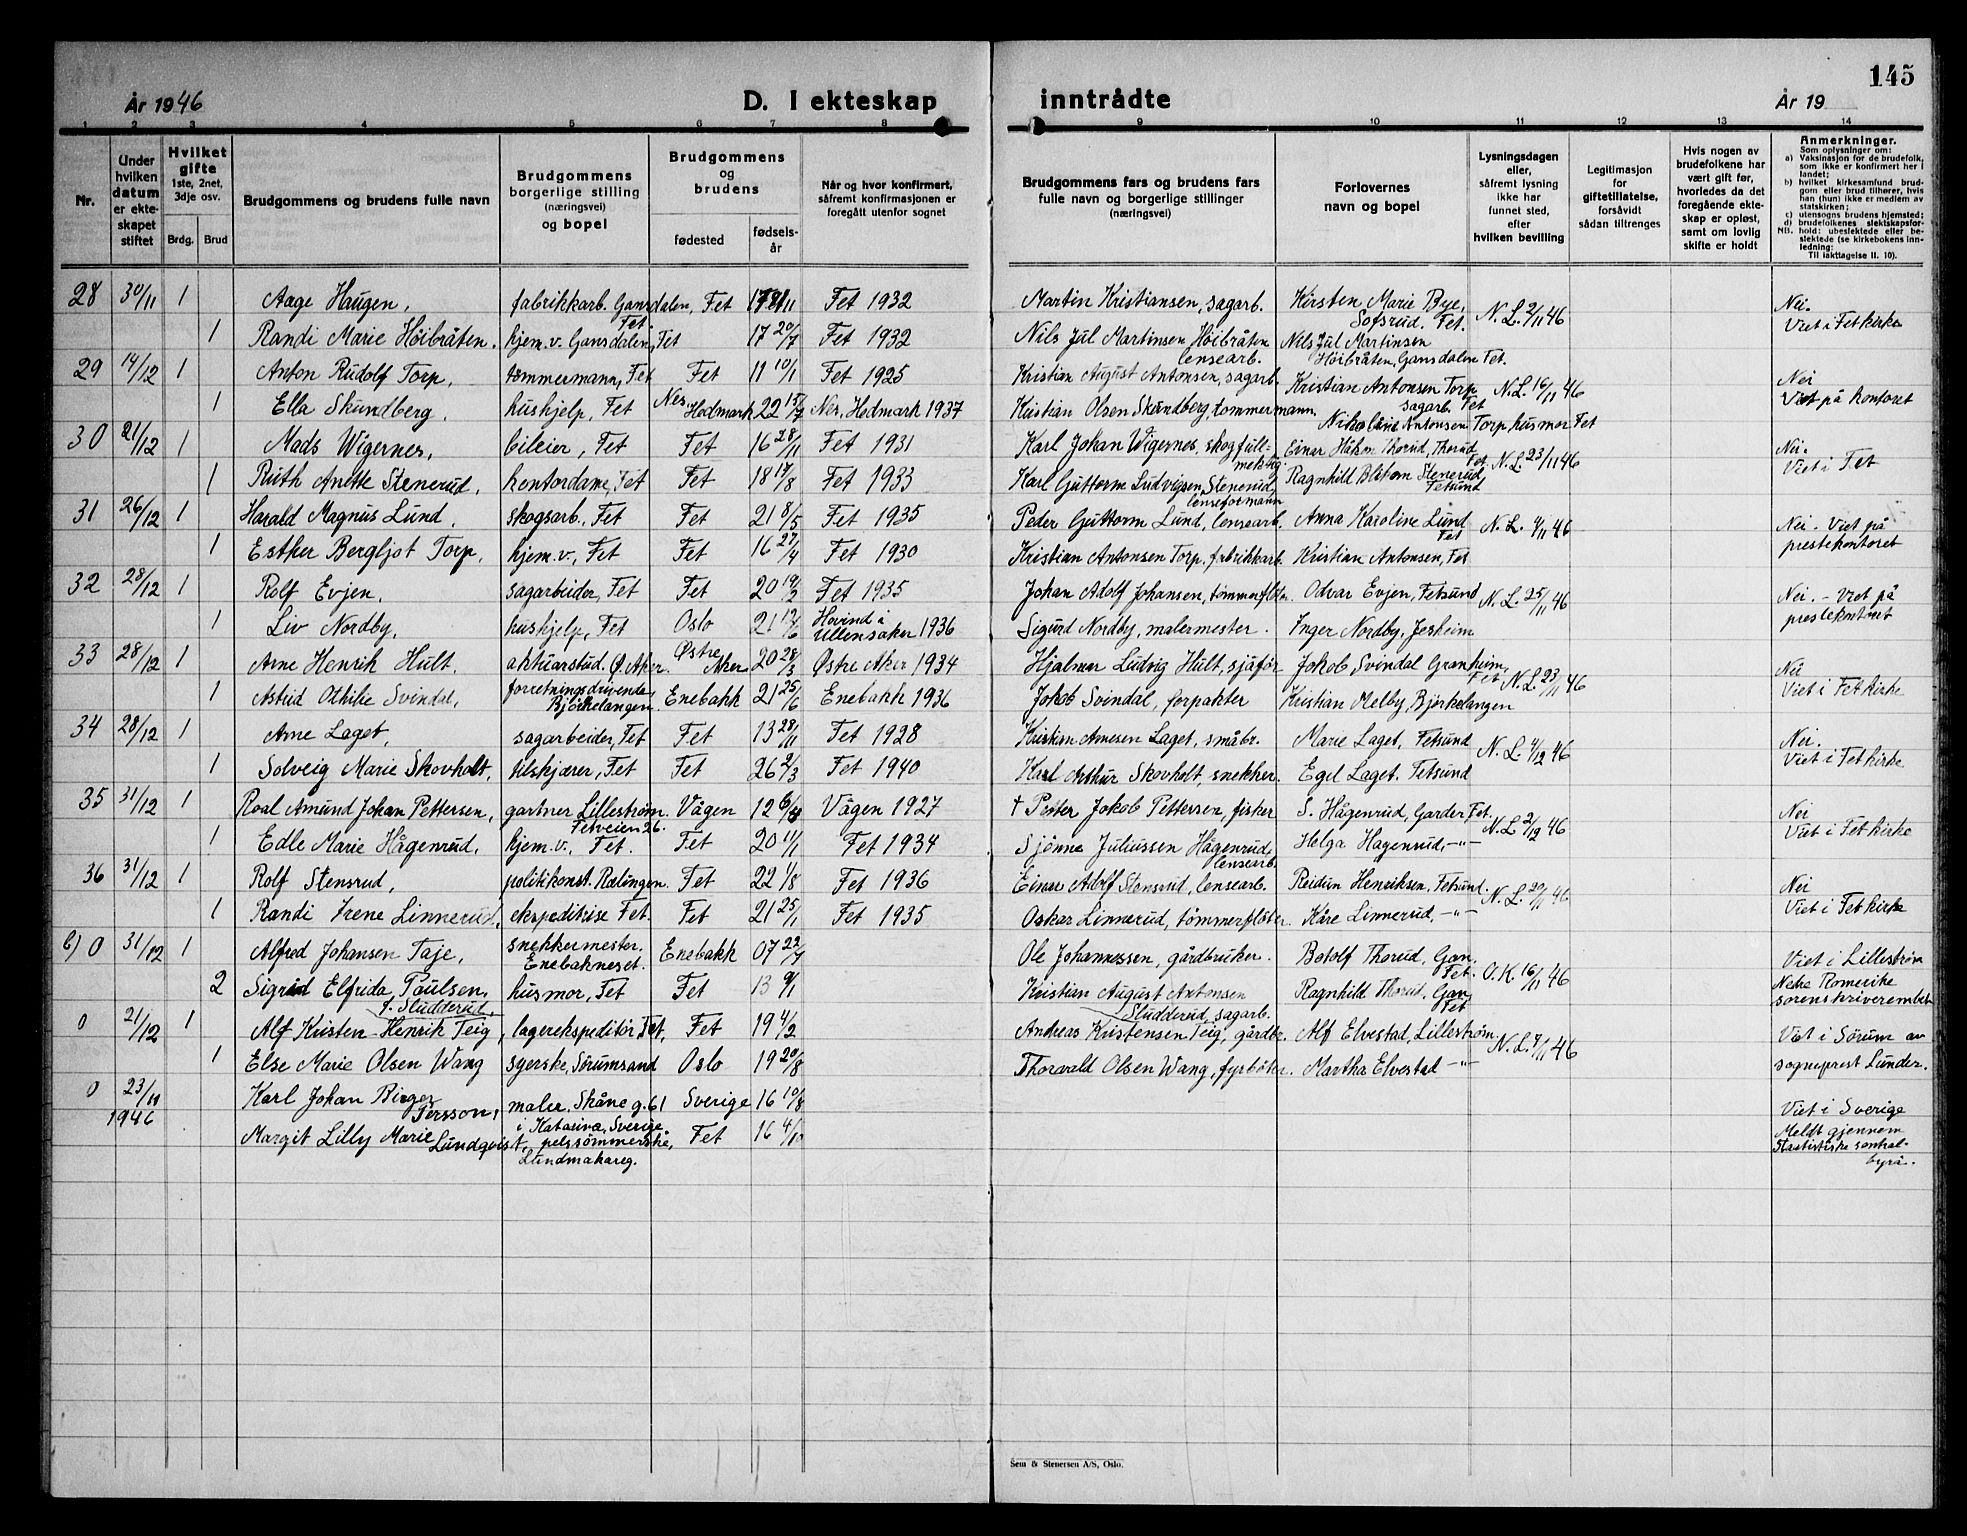 145
År 1946 D. I ekteskap inntrådte År 19
1 2 3 4 5 6 7 8 9 10 11 12 13 14
Nr.
Under hvilken datum er ekteskapet stiftet
Hvilket gifte 1ste, 2net, 3dje osv.
Brdg. Brud
Brudgommens og brudens fulle navn
Brudgommens borgerlige stilling (næringsvei) og bopel
Brudgommens og brudens
fødested fødselsår
Når og hvor konfirmert, såfremt konfirmasjonen er foregått utenfor sognet
Brudgommens fars og brudens fars fulle navn og borgerlige stillinger (næringsvei)
Forlovernes navn og bopel
Lysningsdagen eller, såfremt lysning ikke har funnet sted, efter hvilken bevilling
Legitimasjon for giftetillatelse, forsåvidt sådan tiltrenges
Hvis nogen av brudefolkene har vært gift før, hvorledes da det foregående ekteskap er opløst, samt om lovlig skifte er holdt
Anmerkninger.
Som oplysninger om:
a) Vaksinasjon for de brudefolk, som ikke er konfirmert her i landet;
b) hvilket kirkesamfund brudgom eller brud tilhører, hvis han (hun) ikke er medlem av statskirken;
c) utensogns brudens hjemsted;
d) brudefolkenes slektskapsforhold: ubeslektede eller beslektede (se kirkebokens innledning:
NB.
Til iakttagelse II. 10).
28 30/11 1 Aage Haugen, fabrikkarb. Gansdalen, Fet Fet 1932 Martin Kristiansen, sagarb. Kirsten Marie Bye, Sofsrud. Fet. N.L. 2/11 46 Nei.
1 Randi Marie Höibråten. hjem.v. Gansdalen, Fet 17 20/7 Fet 1932 Nils Jul Martinsen Höibråten lensearb. Nils Jul Martinsen Höibråten, Gansdalen Fet. Viet i Fet kirke
29 14/12 1 Anton Rudolf Torp, tømmermann, Fet Fet 11 10/1 Fet 1925 Kristian August Antonsen, sagarb. Kristian Antonsen Torp sagarb. Fet N.L. 16/11 46 Nei
1 Ella Skundberg, hushjelp, Fet Nes, Hedmark 22 15/7 Nes, Hedmark 1937 Kristian Olsen Skundberg, tommermann Nikoline Antonsen Torp husmor Fet Viet på kontoret
30 21/12 1 Mads Wigernes, bileier, Fet Fet 16 28/11 Fet 1931 Karl Johan Wigernes, skogfullmektig. Einar Håkon Thorud, Thorud Fet N.L. 23/11 46 Nei.
1 Ruth Anette Stenerud, kontordame, Fet Fet 18 17/8 Fet 1933 Karl Guttorm Ludvigsen Stenerud lenseformann Ragnhild Stenerud Fetsund Viet i Fet
31 26/12 1 Harald Magnus Lund, skogsarb., Fet Fet 21 8/5 Fet 1935 Peder Guttorm Lund, lensearb. Anna Karoline Lund Fet N.L. 4/11 46 Nei. Viet på
1 Esther Bergljot Torp, hjem.v., Fet Fet 16 27/4 Fet 1930 Kristian Antonsen Torp, fabrikkarb. Kristian Antonsen, Fet prestekontoret
32 28/12 1 Rolf Evjen, sagarbeider, Fet Fet 20 19/2 Fet 1935 Johan Adolf Johansen, tömmerflöter. Odvar Evjen, Fetsund N.L. 25/11 46 Nei. - Viet på
1 Liv Nordby, hushjelp, Fet Oslo 21 12/6 Hovind i Ullensaker 1936 Sigurd Nordby, malermester. Inger Nordby, Jesheim prestekontoret
33 28/12 1 Arne Henrik Hult. aktuarstud. Ø. Aker. Østre Aker 20 28/3 Østre Aker 1934 Hjalmar Ludvig Hult, sjåfør Jakob Svindal Granheim, Fet. N.L. 23/11 46 Nei
1 Astrid Othilie Svindal, forretningsdrivende Bjørkelangen. Enebakk 21 25/6 Enebakk 1936 Jakob Svindal, forpakter Kristian Melby, Bjørkelangen Viet i Fet kirke
34 28/12 1 Arne Laget, sagarbeider, Fet Fet 13 28/11 Fet 1928 Kristian Arnesen Laget, småbr. Marie Laget, Fetsund N.L. 4/12 46 Nei.
1 Solveig Marie Skovholt, tilskjærer, Fet Fet 26 2/3 Fet 1940 Karl Arthur Skovholt, snekker. Egil Laget. Fetsund Viet i Fet kirke
35 31/12 1 Roal Amund Johan Pettersen, gartner Lillestrøm, Fetveien 26. Vågen 12 Vågen 1927 † Peter Jakob Pettersen, fisker S. Hågenrud, Garder Fet. N.L. 2/12 46 Nei
1 Edle Marie Hågenrud, hjem.v., Fet. Fet 20 11/1 Fet 1934 Sjönne Juliussen Hågenrud, lensearb. Helga Hagenrud, -"- Viet i Fet kirke
36 31/12 1 Rolf Stensrud, politikonst. Rælingen. Fet 22 1/8 Fet 1936 Einar Adolf Stensrud, lensearb. Reidun Henriksen, Fetsund. N.L. 20/11 46 Nei
1 Randi Irene Linnerud, ekspeditrise Fet. Fet 21 25/1 Fet 1935 Oskar Linnerud, tömmerflöter. Kåre Linnerud, -"- Viet i Fet kirke
b) 0 31/12 1 Alfred Johansen Taje, snekkermester. Enebakneset. Enebakk 07 22/7 Ole Johannessen, gårdbruker. Botolf Thorud, Gan, Fet. O.K. 16/11 46 Viet i Lillestrøm
2 Sigrid Elfrida Paulsen, f. Sludderud, husmor, Fet Fet 13 9/1 Kristian August Antonsen Sludderud, sagarb. Ragnhild Thorud, Gan, Fet Nedre Romerike sorenskriverembete
0 21/12 1 Alf Kristen Henrik Teig, lagerekspeditör Fet, Fet 19 4/2 Andreas Kristensen Teig, gårdbr. Alf Elvestad, Lilleström N.L. 7/11 46 Viet i Sörum av
1 Else Marie Olsen Wang syerske, Sörumsand Oslo 19 20/8 Thorvald Olsen Wang, fyrböter. Martha Elvestad -"- sogneprest Lunder.
0 23/11 1946 Karl Johan Birger Persson, maler, Skåne g. 61 i Katarina, Sverige Sverige 16 10/8 Viet i Sverige
Margit Lilly Marie Lundqvist, pelssömmerske, Lundmakareg. Fet 16 4/10 Meldt gjennem Statistiske sentralbyrå.
Sem & Stenersen A/S, Oslo.